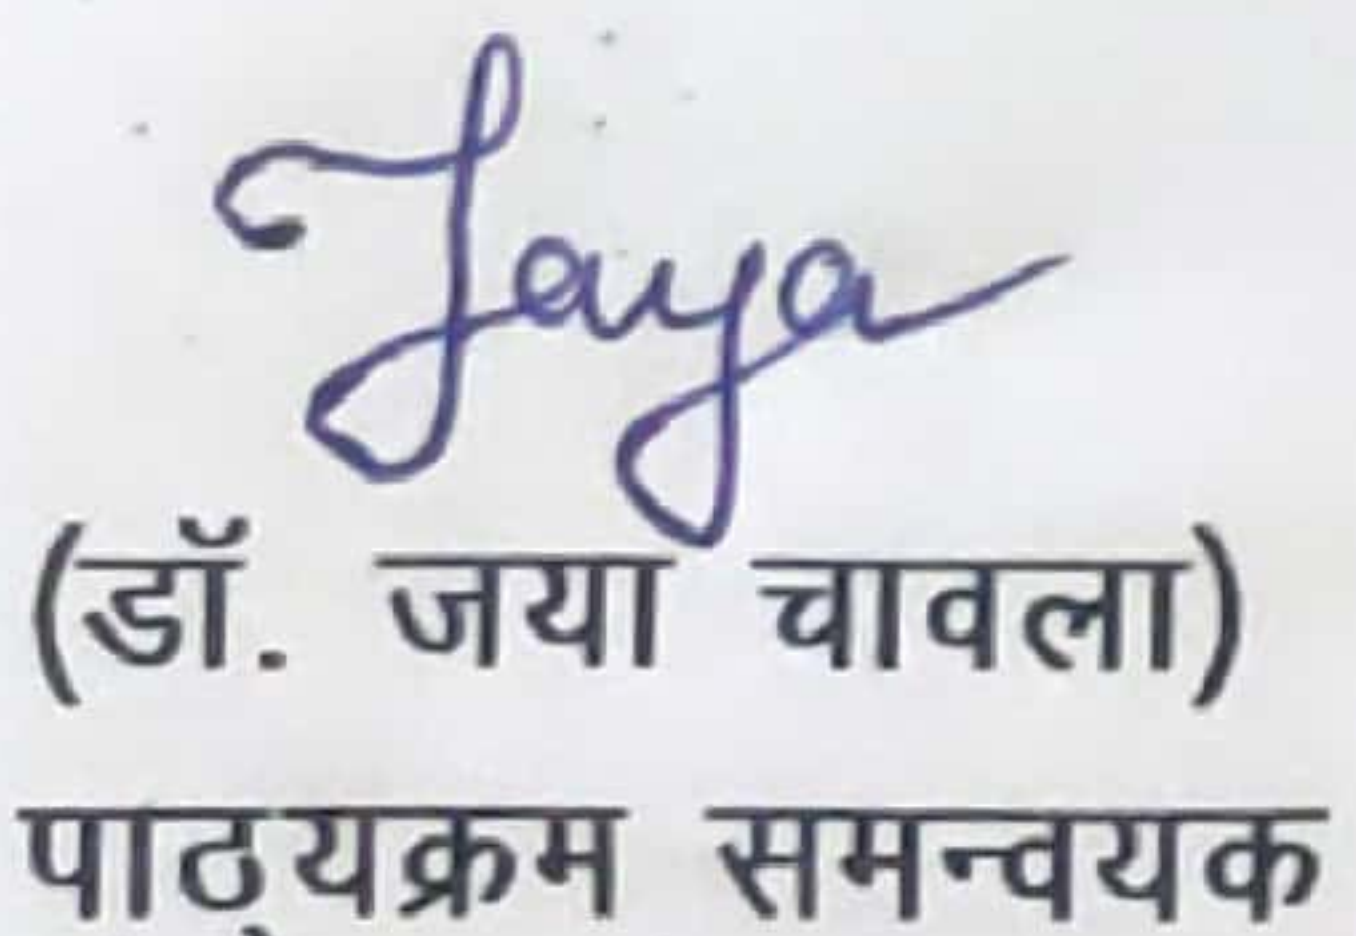 Jaya
(डॉ. जया चावला)
पाठ्यक्रम समन्वयक